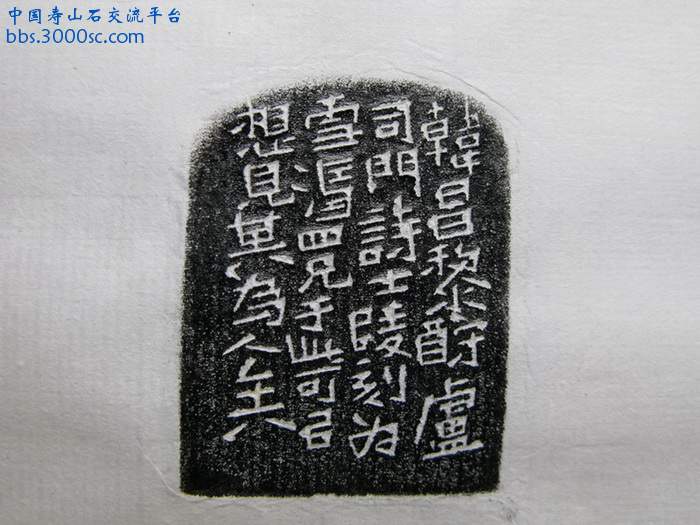 中国寿山石交流平台
bbs.3000sc.com
韓昌黎酧盧
司門詩士陵刻为
雪四兄于此可㠯
想見其為人矣